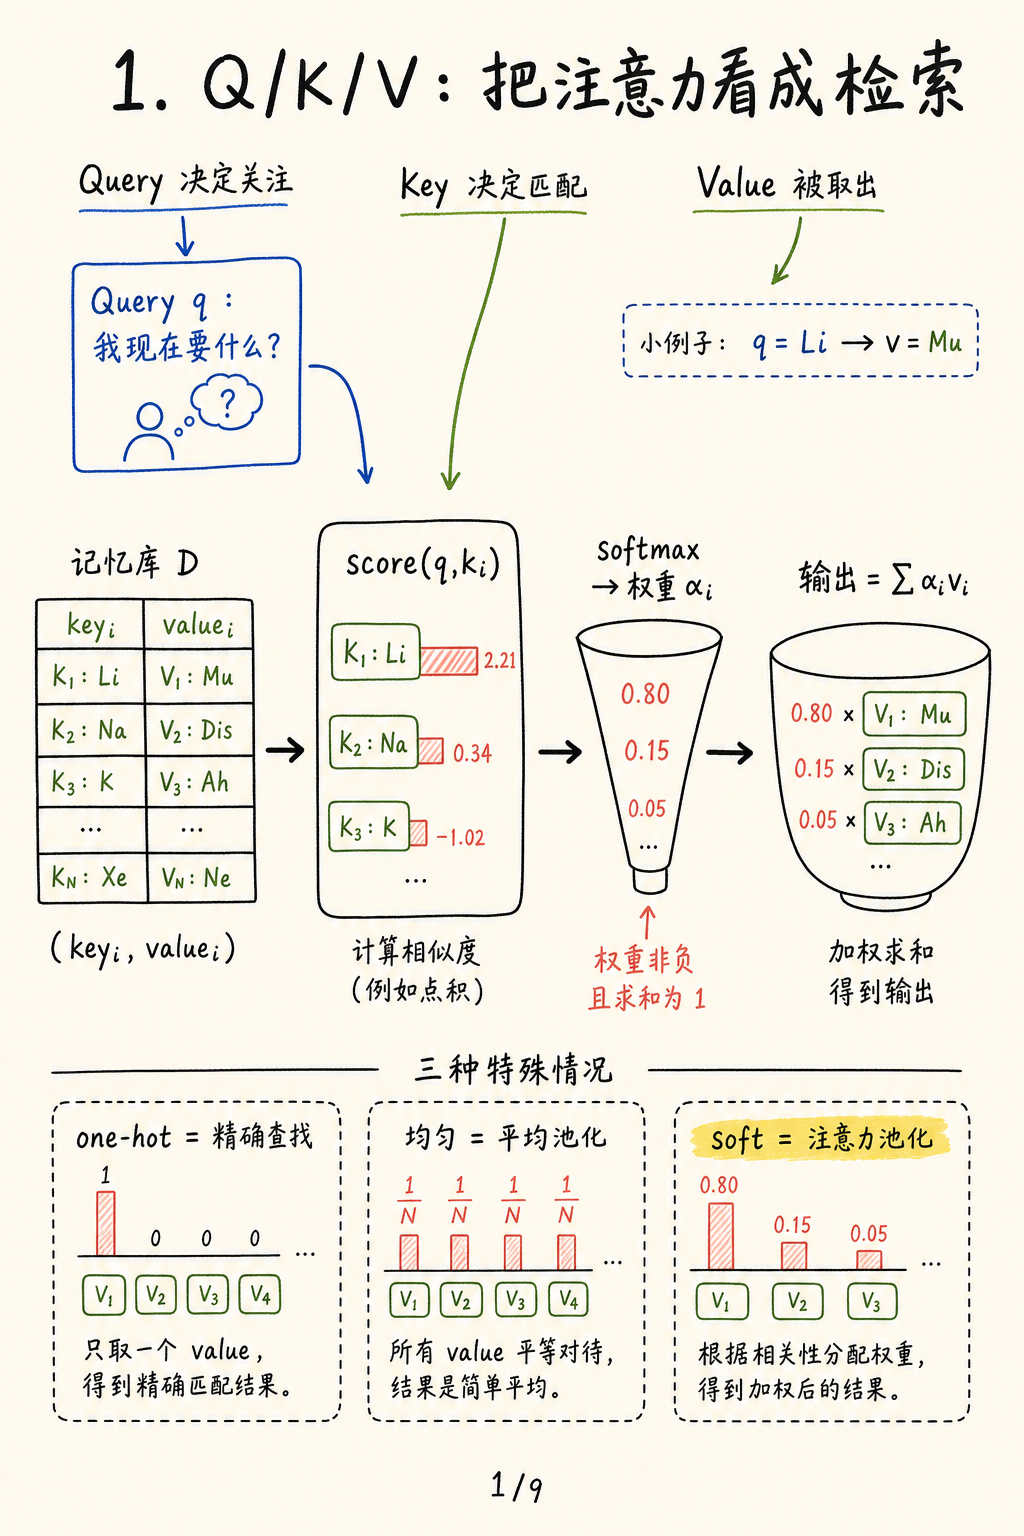 1. Q/K/V：把注意力看成检索
Query 决定关注
Key 决定匹配
Value 被取出
Query q：
我现在要什么？
?
小例子： q = Li → v = Mu
记忆库 D
keyᵢ valueᵢ
K₁：Li V₁：Mu
K₂：Na V₂：Dis
K₃：K V₃：Ah
... ...
K_N：Xe V_N：Ne
(keyᵢ, valueᵢ)
score(q,kᵢ)
K₁：Li 2.21
K₂：Na 0.34
K₃：K -1.02
...
计算相似度
(例如点积)
softmax
→ 权重 αᵢ
0.80
0.15
0.05
...
权重非负
且求和为 1
输出 = ∑ αᵢvᵢ
0.80 × V₁：Mu
0.15 × V₂：Dis
0.05 × V₃：Ah
...
加权求和
得到输出
三种特殊情况
one-hot = 精确查找
1 0 0 0 ...
V₁ V₂ V₃ V₄
只取一个 value，
得到精确匹配结果。
均匀 = 平均池化
1/N 1/N 1/N 1/N ...
V₁ V₂ V₃ V₄
所有 value 平等对待，
结果是简单平均。
soft = 注意力池化
0.80 0.15 0.05 ...
V₁ V₂ V₃
根据相关性分配权重，
得到加权后的结果。
1/9